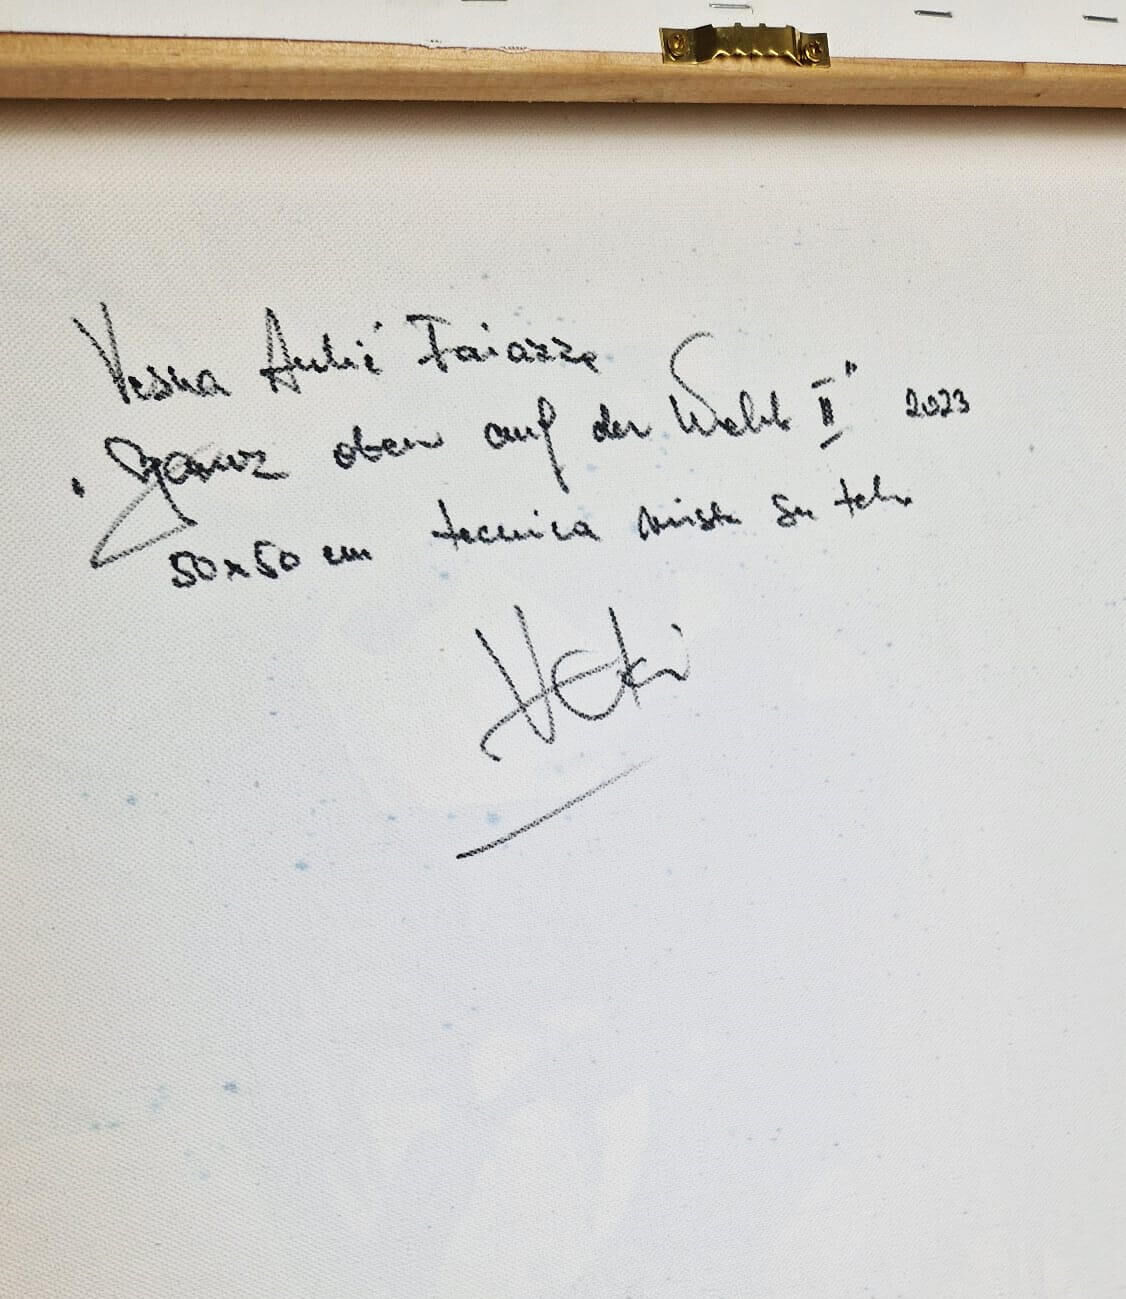 Vesna
„Ganz oben auf der Welt II" 2023
50x50 cm tecnica mista su tela
Veki